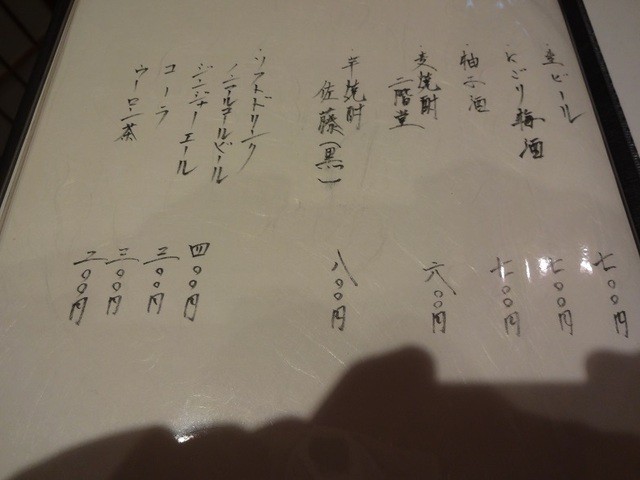 ・生ビール 七〇〇円
・にごり梅酒 七〇〇円
・柚子酒 七〇〇円
・麦焼酎
二階堂 六〇〇円
・芋焼酎
佐藤(黒) 八〇〇円
・ソフトドリンク
ノンアルコールビール 四〇〇円
ジンジャーエール 三〇〇円
コーラ 三〇〇円
ウーロン茶 二〇〇円